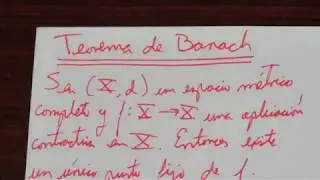 Teorema de Banach
Sea (X, d) un espacio métrico
completo y f: X → X una aplicación
contractiva en X. Entonces existe
un único punto fijo de f.